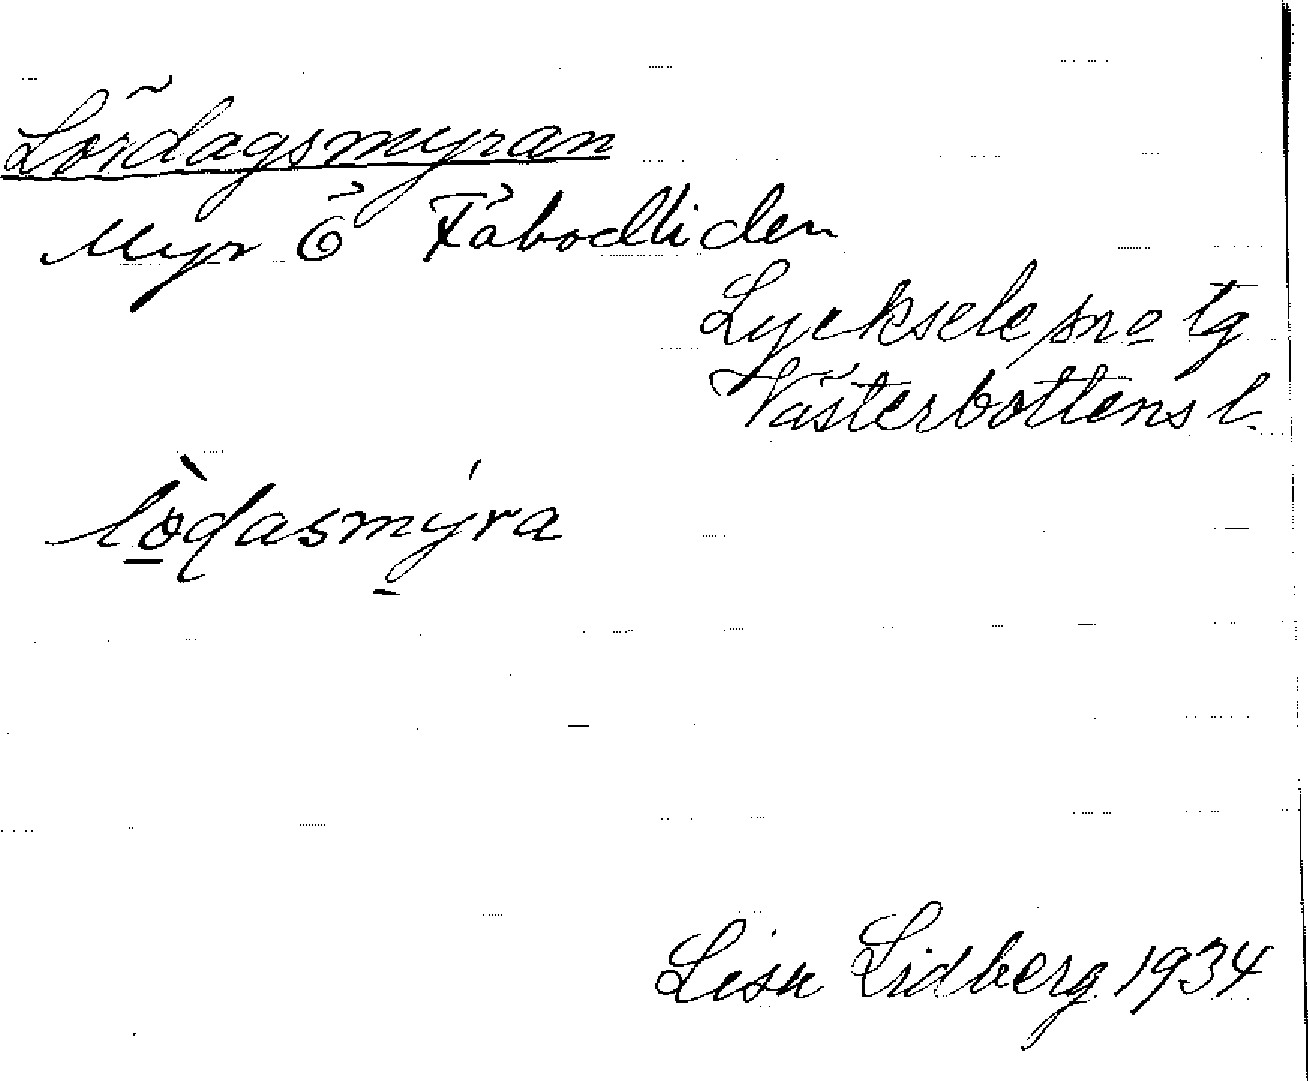 Lördagsmyran
Myr Ö Fäbodliden
Lycksele sn o tg
Västerbottens l.
lò̱dasmý̱ra
Lisa Lidberg 1934